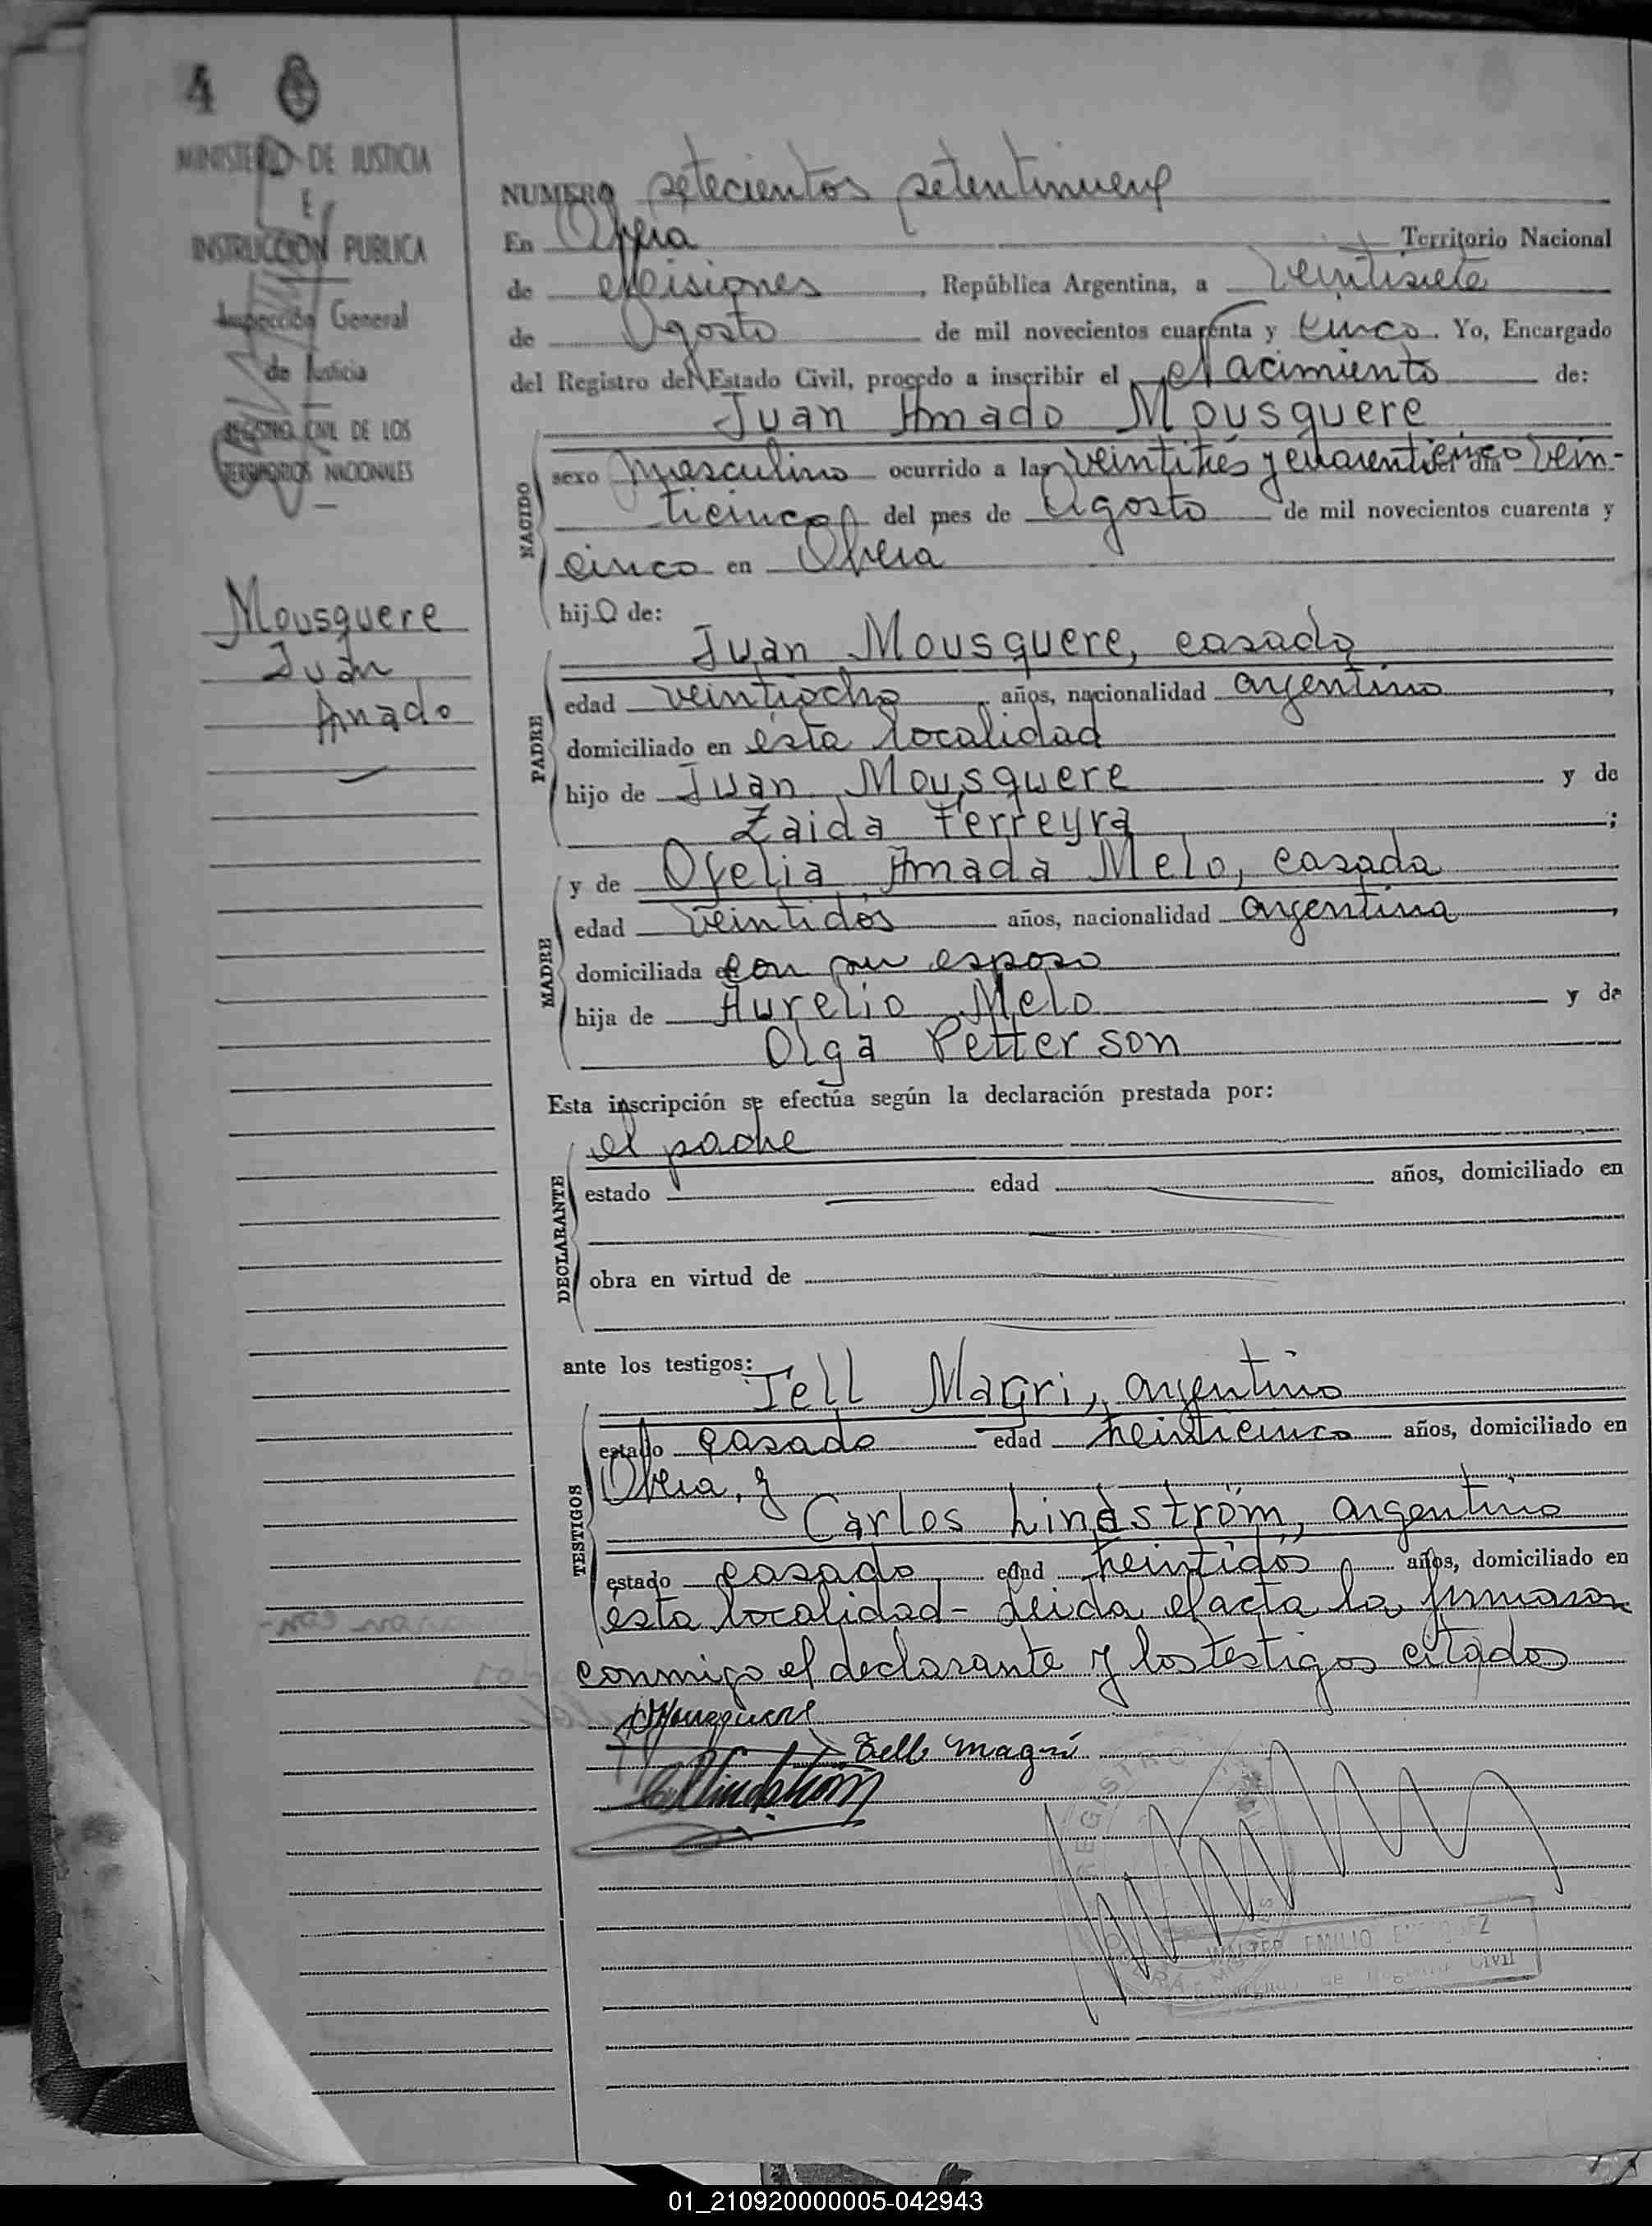 4
MINISTERIO DE JUSTICIA
E
INSTRUCCION PUBLICA
Inspección General
de Justicia
REGISTRO CIVIL DE LOS
TERRITORIOS NACIONALES
Mousquere
Juan
Amado
NUMERO setecientos setentinueve
En Oberá Territorio Nacional
de Misiones, República Argentina, a veintisiete
de Agosto de mil novecientos cuarenta y cinco. Yo, Encargado
del Registro del Estado Civil, procedo a inscribir el Nacimiento de:
Juan Amado Mousquere
NACIDO
sexo masculino ocurrido a las veintitrés y cuarenticinco del día vein-
ticinco del mes de Agosto de mil novecientos cuarenta y
cinco en Oberá
hijo de:
PADRE
Juan Mousquere, casado
edad veintiocho años, nacionalidad argentino,
domiciliado en ésta localidad
hijo de Juan Mousquere y de
Zaida Ferreyra;
MADRE
y de Ofelia Amada Melo, casada
edad veintidós años, nacionalidad argentina,
domiciliada con su esposo
hija de Aurelio Melo y de
Olga Petterson
Esta inscripción se efectúa según la declaración prestada por:
DECLARANTE
el padre
estado edad años, domiciliado en
obra en virtud de
ante los testigos:
TESTIGOS
Tell Magri, argentino
estado casado edad treinticinco años, domiciliado en
Oberá, y
Carlos Lindström, argentino
estado casado edad treintidós años, domiciliado en
ésta localidad - Leida el acta la firmaron
conmigo el declarante y los testigos citados
JMousquere
Tell Magri
CLindström
REGISTRO
WALTER EMILIO
Encargado de Registro Civil
01_210920000005-042943